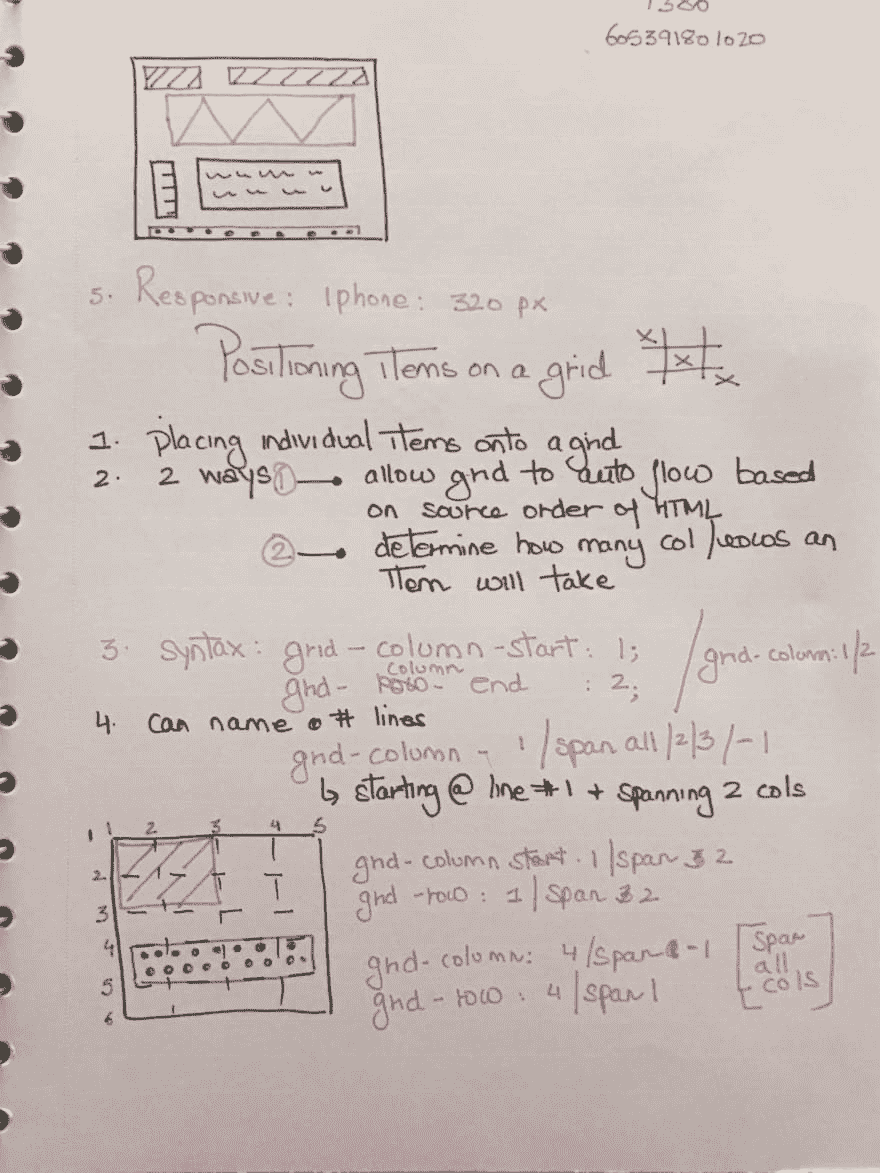 605391801020
5. Responsive: Iphone: 320 px
Positioning items on a grid
1. Placing individual items onto a grid
2. 2 ways ① → allow grid to auto flow based
on source order of HTML
② → determine how many col/rows an
item will take
3. Syntax: grid-column-start: 1; / grid-column: 1/2
grid-column-end : 2;
4. can name # lines
grid-column - 1/span all/2/3/-1
↳ starting @ line #1 + spanning 2 cols
1 1 2 3 4 5
2
3
4
5
6
grid-column start. 1/span 2
grid-row: 1/span 2
grid-column: 4/span -1
grid-row: 4/span 1
[span
all
cols]